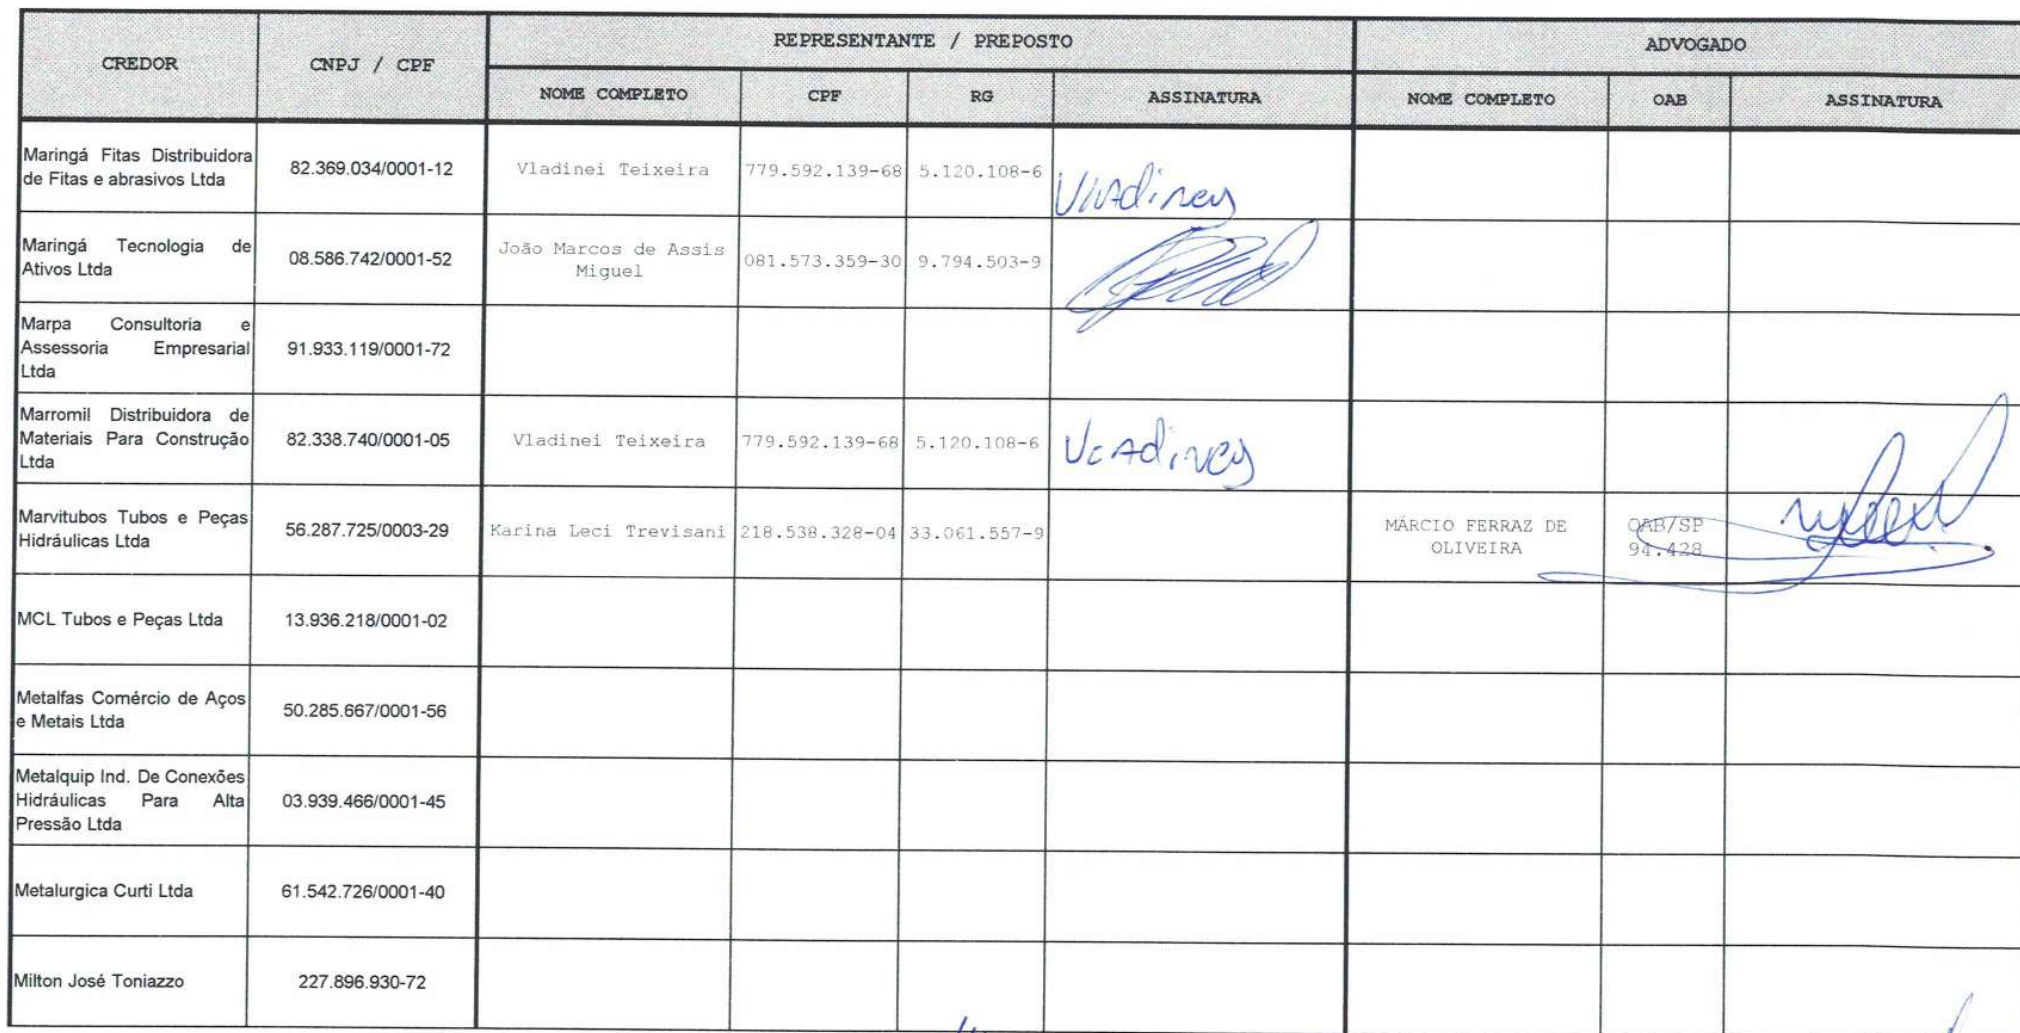 CREDOR CNPJ / CPF REPRESENTANTE / PREPOSTO ADVOGADO
NOME COMPLETO CPF RG ASSINATURA NOME COMPLETO OAB ASSINATURA
Maringá Fitas Distribuidora
de Fitas e abrasivos Ltda
82.369.034/0001-12
Vladinei Teixeira
779.592.139-68
5.120.108-6
Maringá Tecnologia de
Ativos Ltda
08.586.742/0001-52
João Marcos de Assis
Miguel
081.573.359-30
9.794.503-9
Marpa Consultoria e
Assessoria Empresarial
Ltda
91.933.119/0001-72
Marromil Distribuidora de
Materiais Para Construção
Ltda
82.338.740/0001-05
Vladinei Teixeira
779.592.139-68
5.120.108-6
Marvitubos Tubos e Peças
Hidráulicas Ltda
56.287.725/0003-29
Karina Leci Trevisani
218.538.328-04
33.061.557-9
MÁRCIO FERRAZ DE
OLIVEIRA
OAB/SP
94.428
MCL Tubos e Peças Ltda
13.936.218/0001-02
Metalfas Comércio de Aços
e Metais Ltda
50.285.667/0001-56
Metalquip Ind. De Conexões
Hidráulicas Para Alta
Pressão Ltda
03.939.466/0001-45
Metalurgica Curti Ltda
61.542.726/0001-40
Milton José Toniazzo
227.896.930-72